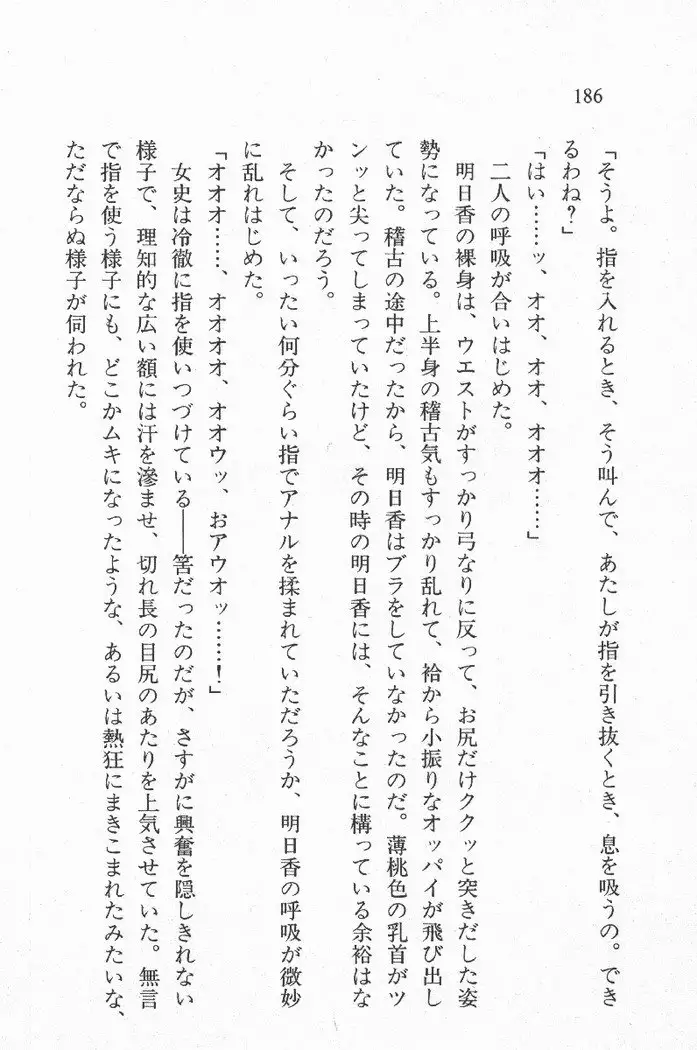 186
「そうよ。指を入れるとき、そう叫んで、あたしが指を引き抜くとき、息を吸うの。でき
るわね？」
「はい……ッ、オオ、オオ、オオオ……」
二人の呼吸が合いはじめた。
明日香の裸身は、ウエストがすっかり弓なりに反って、お尻だけククッと突きだした姿
勢になっている。上半身の稽古気もすっかり乱れて、袷から小振りなオッパイが飛び出し
ていた。稽古の途中だったから、明日香はブラをしていなかったのだ。薄桃色の乳首がツ
ンッと尖ってしまっていたけど、その時の明日香には、そんなことに構っている余裕はな
かったのだろう。
そして、いったい何分ぐらい指でアナルを揉まれていただろうか、明日香の呼吸が微妙
に乱れはじめた。
「オオオ……、オオオオ、オオウッ、おアウオッ……！」
女史は冷徹に指を使いつづけている――筈だったのだが、さすがに興奮を隠しきれない
様子で、理知的な広い額には汗を滲ませ、切れ長の目尻のあたりを上気させていた。無言
で指を使う様子にも、どこかムキになったような、あるいは熱狂にまきこまれたみたいな、
ただならぬ様子が伺われた。